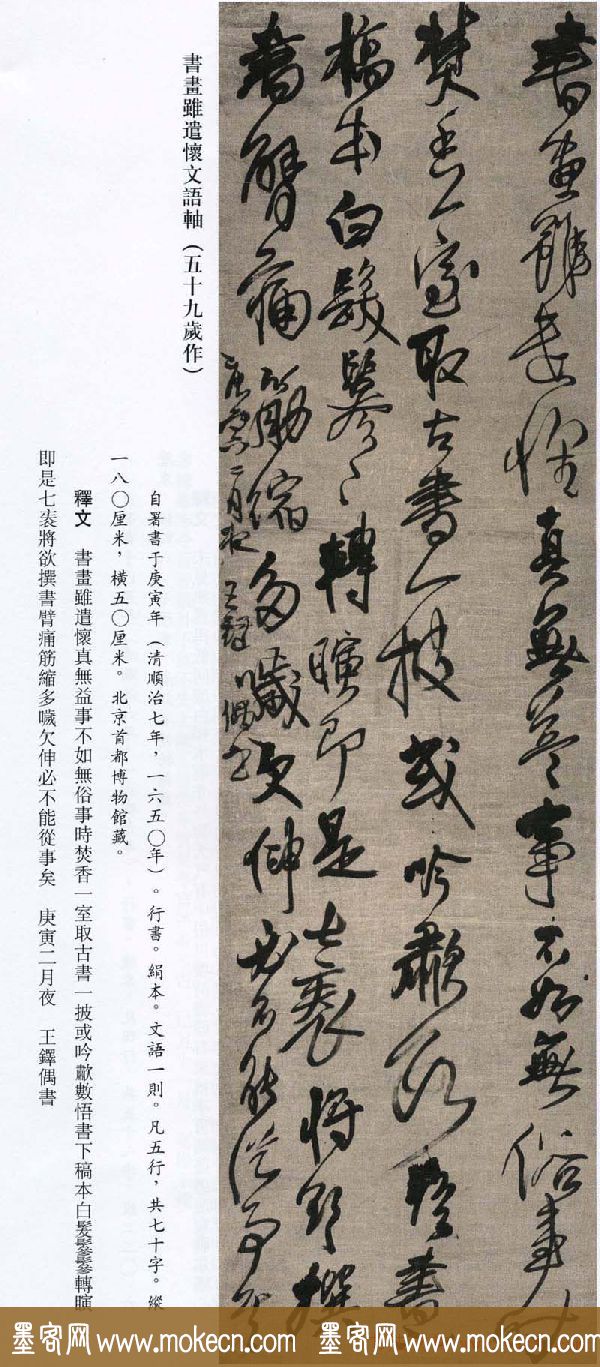 書畫雖遣懷真無益事不如無俗事時
焚香一室取古書一披或吟歗數悟書
稿本白髮鬖〻轉瞚即是七袠將欲撰
書臂痛筋縮多噦欠伸必不能從事矣
庚寅二月夜 王鐸偶書
書畫雖遣懷文語軸（五十九歲作）
自署書于庚寅年（清順治七年，一六五〇年）。行書。絹本。文語一則。凡五行，共七十字。縱
一八〇厘米，橫五〇厘米。北京首都博物館藏。
釋文 書畫雖遣懷真無益事不如無俗事時焚香一室取古書一披或吟歗數悟書下稿本白髮鬖鬖轉瞚
即是七袠將欲撰書臂痛筋縮多噦欠伸必不能從事矣 庚寅二月夜 王鐸偶書
墨客网 www.mokecn.com 墨客网 www.mokecn.com